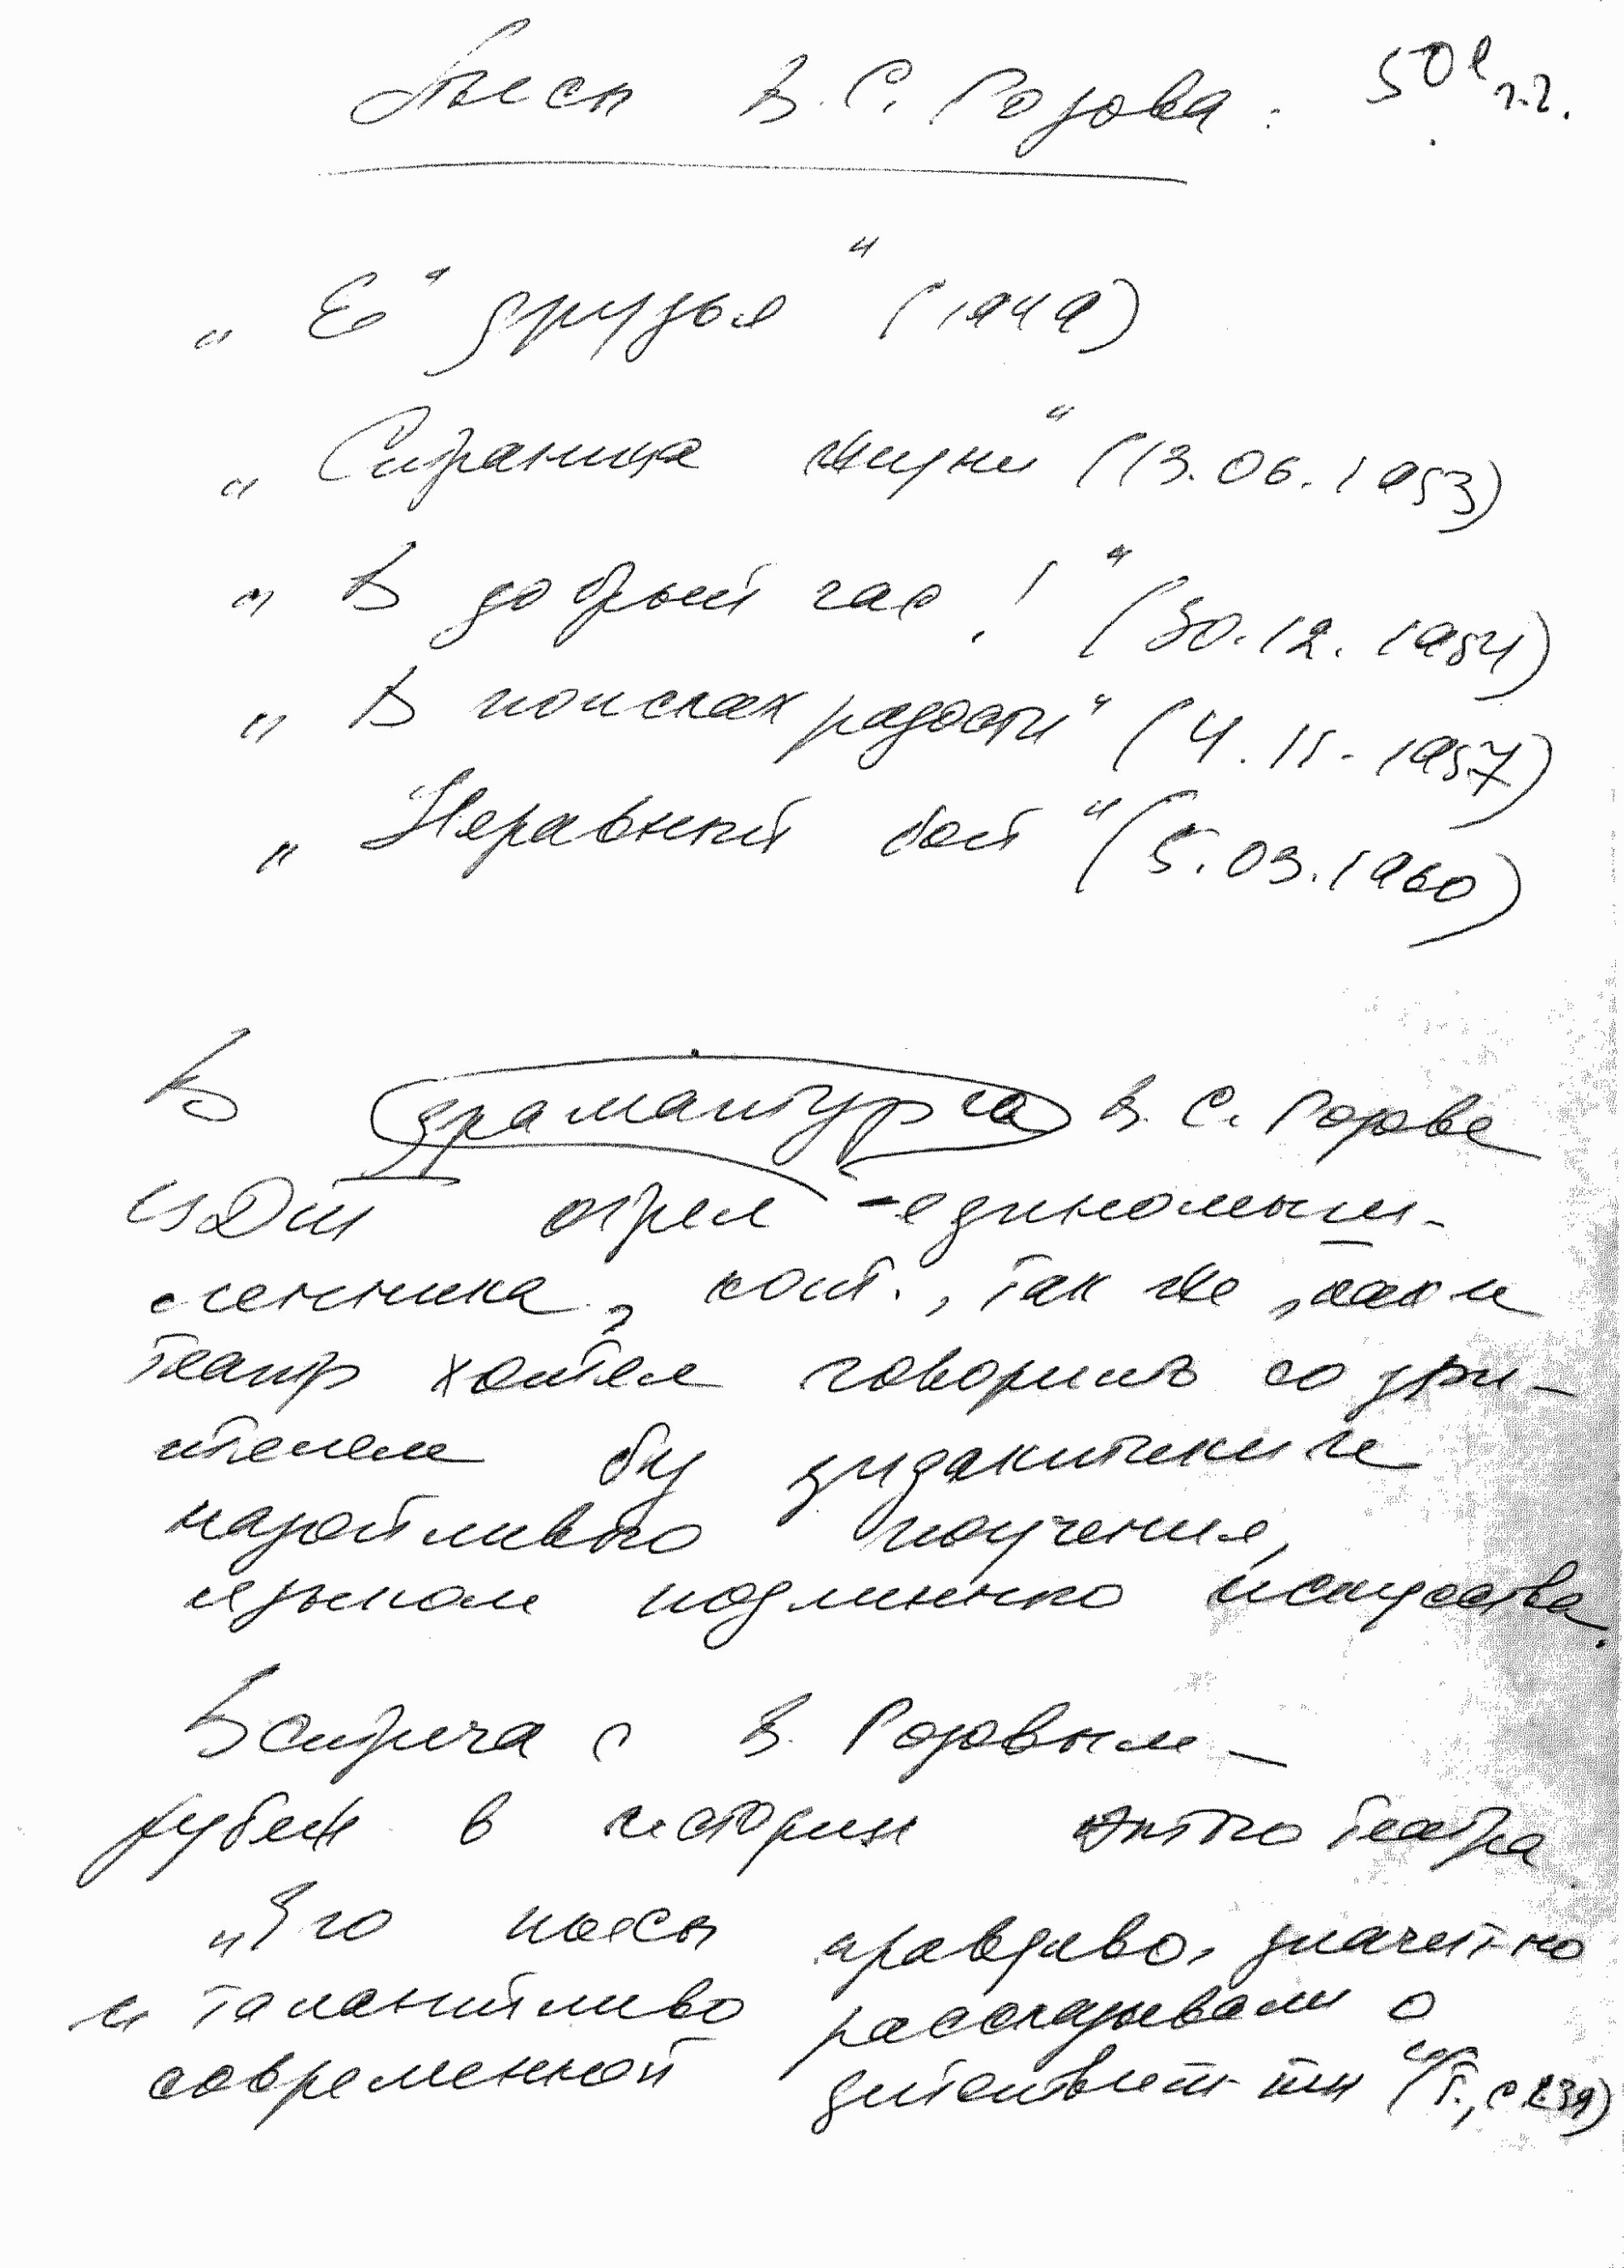 Пьесы В. С. Розова. 50е г.г.
„Её друзья“ (1949)
„Страница жизни“ (13.06.1953)
„В добрый час!“ (30.12.1954)
„В поисках радости“ (4.11.1957)
„Неравный бой“ (5.03.1960)
В драматурга В. С. Розове
ЦДТ обрел - единомыш-
ленника, кот., так же, как и
театр хотел говорить со зри-
телем без дидактики и
назойливого поучения,
языком подлинного искусства.
Встреча с В. Розовым -
рубеж в истории этого театра
„Его пьесы правдиво, значит-но
и талантливо рассказывали о
современной действит-ти“ (Т., с 239)